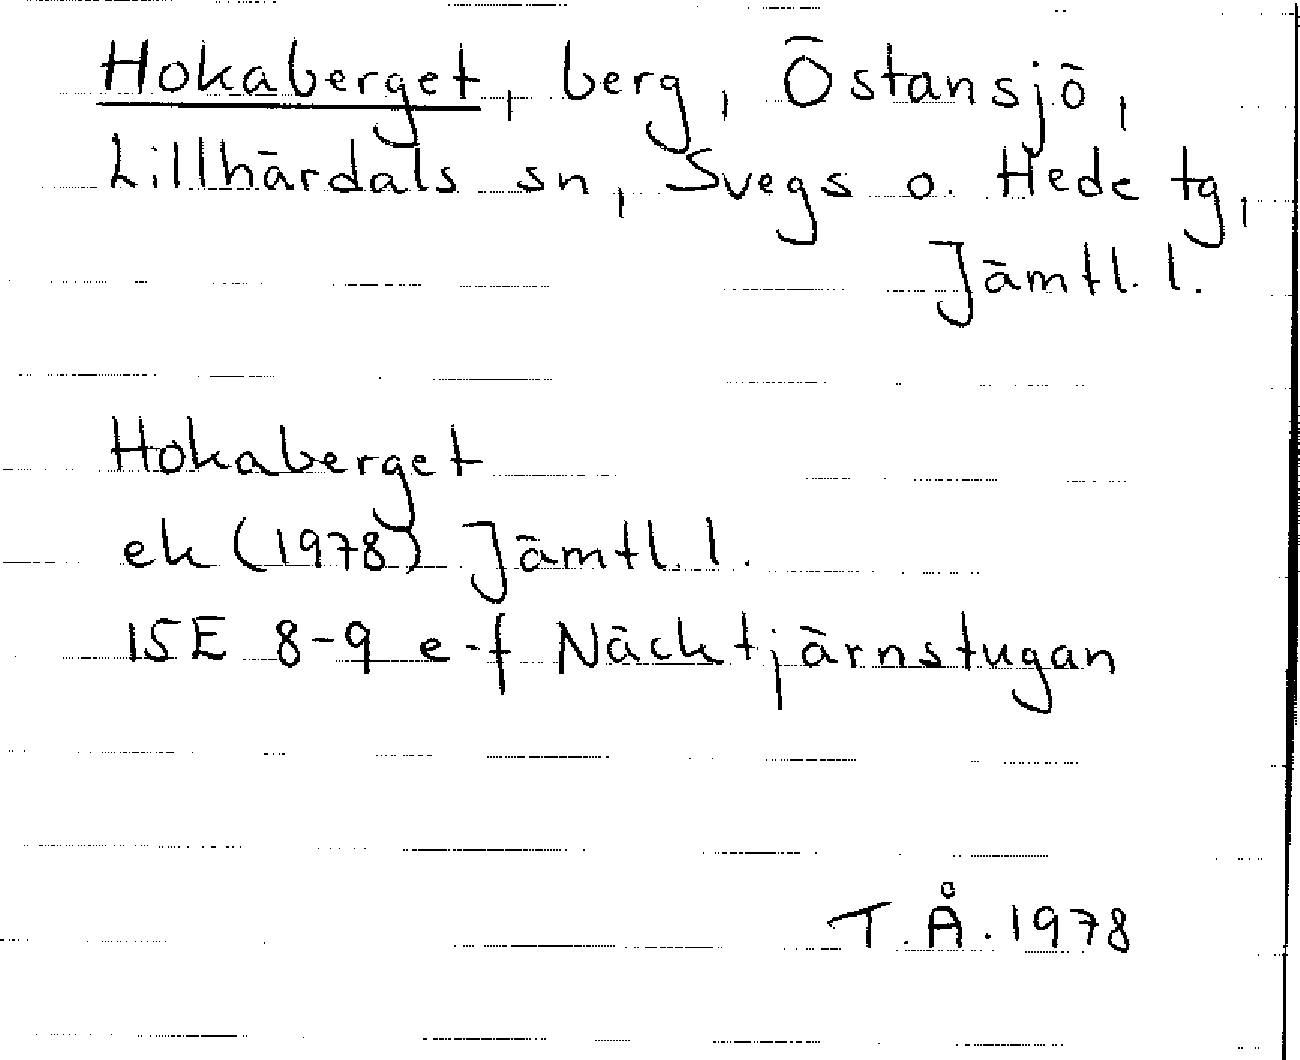 Hokaberget, berg, Östansjö,
Lillhärdals sn, Svegs o. Hede tg,
Jämtl. l.
Hokaberget
ek (1978) Jämtl. l.
15E 8-9 e-f Näcktjärnstugan
T.Å. 1978